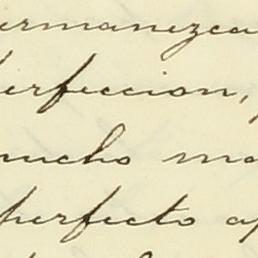 ermanezca
erfeccion,
mucho ma
perfecto a